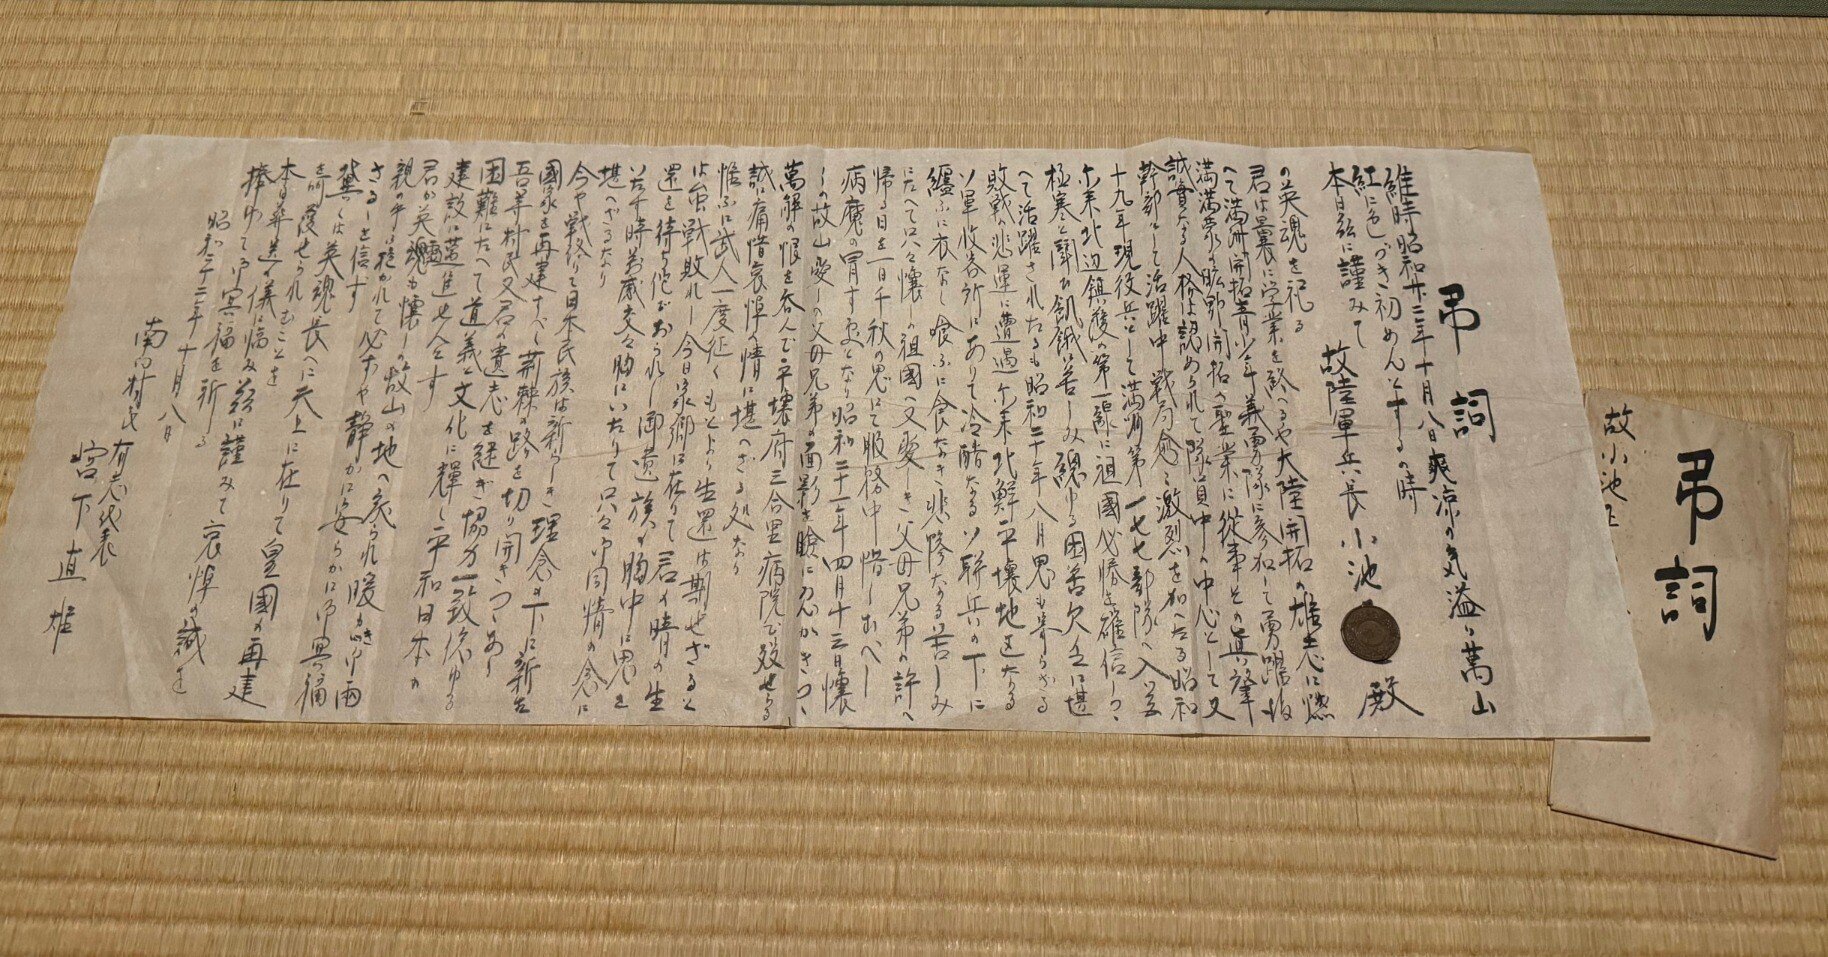 弔詞
維時昭和廿二年十月八日爽凉の気溢るゝ萬山
紅に色づき初めんとするの時
本日茲に謹みて 故陸軍兵長 小池 殿
の英魂を祀る
君は曩に学業を終へるや大陸開拓の雄志に燃
へて満洲開拓青少年義勇隊に参加して勇躍
満蒙の 開拓の聖業に従事し其の
誠實なる人格は認められて隊員中の中心として又
幹部として活躍中戦局愈々激烈を加へたる昭和
十九年現役兵として満洲第一七七部隊へ入営
尓来北辺鎮護の第一線に祖國必勝を確信しつゝ
極寒と闘ひ飢餓に苦しみ 困苦欠乏に堪
へて活躍されたるも昭和二十年八月思も寄らざる
敗戦の悲運に遭遇し尓来北鮮平壌地区なる
ソ軍收容所にありて冷酷なるソ聯兵の下に
纏ふに衣なし喰ふに食なき悲惨なる苦しみ
にたへて只々懐しの祖國へ又愛しき父母兄弟の許へ
帰る日を一日千秋の思にて服務中惜しむべし
病魔の冒す処となり昭和二十一年四月十三日懐
しの故山愛しの父母兄弟の面影を瞼に えがきつゝ
萬斛の恨を呑んで平壌府三合里病院で歿せらる
誠に痛惜哀悼の情に堪へざる処なり
惟ふに武人一度征くもとより生還は期せざると
は云ひ戦敗れし今日家郷に在りて君の晴の生
還を待ち佗びおられし御遺族の胸中に思を
いた千時萬感交々胸にいたりて只々御同情の念に
堪へざるなり
今や戦終りて日本民族は新しき理念の下に新な
國家を再建すべく荊棘の路を切り開きつゝあり
吾等村民又君の遺志を継ぎ協力一致 ゆる
困難にたへて道義と文化に輝く平和日本の
建設に邁進せんとす
君が英霊 も懐しの故山の地へ還られ暖かき御両
親の手に抱かれて必ずや静かに安らかに御冥福
さるゝを信す
冀くは英魂長へに天上に在りて皇國の再建
を御護せられむことを
本日葬送の儀に臨み茲に謹みて哀悼の誠を
捧ゆて御冥福を祈る
昭和二十二年十月八日
南向村民 有志代表
宮下直雄
弔詞
故小池